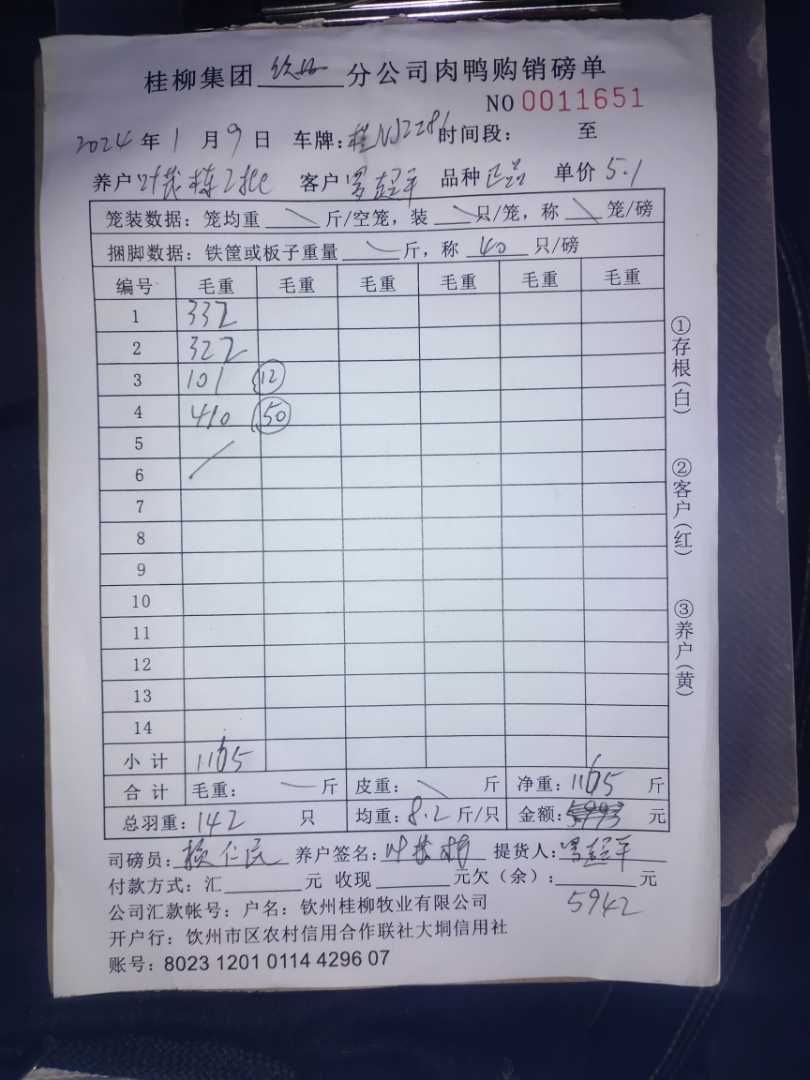 桂柳集团 钦州 分公司肉鸭购销磅单
NO 0011651
2024 年 1 月 9 日 车牌: 桂N 时间段: 至
养户 叶茂栋2批 客户 罗超平 品种 正品 单价 5.1
笼装数据: 笼均重 \ 斤/空笼, 装 \ 只/笼, 称 \ 笼/磅
捆脚数据: 铁筐或板子重量 \ 斤, 称 40 只/磅
编号 毛重 毛重 毛重 毛重 毛重 毛重
1 332
2 322
3 101 (12)
4 410 (50)
5
6 /
7
8
9
10
11
12
13
14
小计 1165
合计 毛重: — 斤 皮重: \ 斤 净重: 1165 斤
总羽重: 142 只 均重: 8.2 斤/只 金额: 元
司磅员: 仁民 养户签名: 叶茂栋 提货人: 罗超平
付款方式: 汇 元 收现 元欠(余): 元
5942
公司汇款帐号: 户名: 钦州桂柳牧业有限公司
开户行: 钦州市区农村信用合作联社大垌信用社
账号: 8023 1201 0114 4296 07
①存根(白)
②客户(红)
③养户(黄)